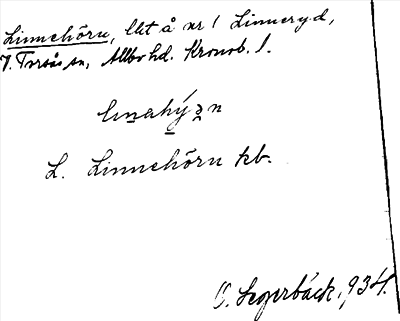 Linnehörn, lht å nr 1 Linneryd,
7. Torsås sn, Allbo hd. Kronob. l.
linahý̱ẕn
L. Linnehörn kb.
O. Segerbäck, 934.